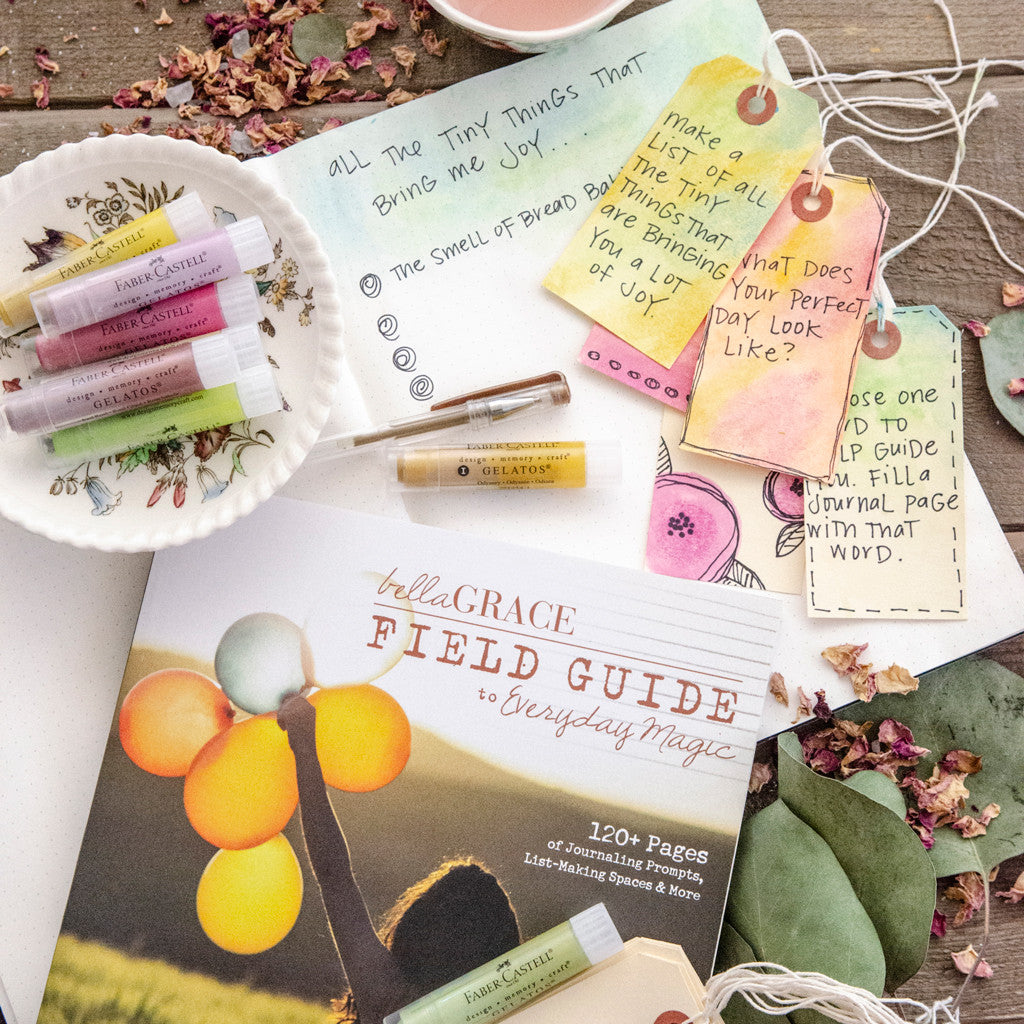 all THE TINY THINGS THAT
BRING ME JOY...
THE SMELL OF BREAD
MAKE a
LIST OF all
THE TINY
THINGS THAT
are BRINGING
YOU a LOT
OF JOY.
WHAT DOES
YOUR PERFECT
DAY LOOK
LIKE?
ONE
TO
GUIDE
FILL a
JOURNAL PAGE
WITH THAT
WORD.
FABER-CASTELL
FABER-CASTELL
design • memory • craft®
FABER-CASTELL
design • memory • craft®
FABER-CASTELL
design • memory • craft®
GELATOS®
FABER-CASTELL
design • memory • craft®
GELATOS®
bellaGRACE
FIELD GUIDE
to Everyday Magic
120+ Pages
of Journaling Prompts,
List-Making Spaces & More
FABER-CASTELL
design • memory • craft®
GELATOS